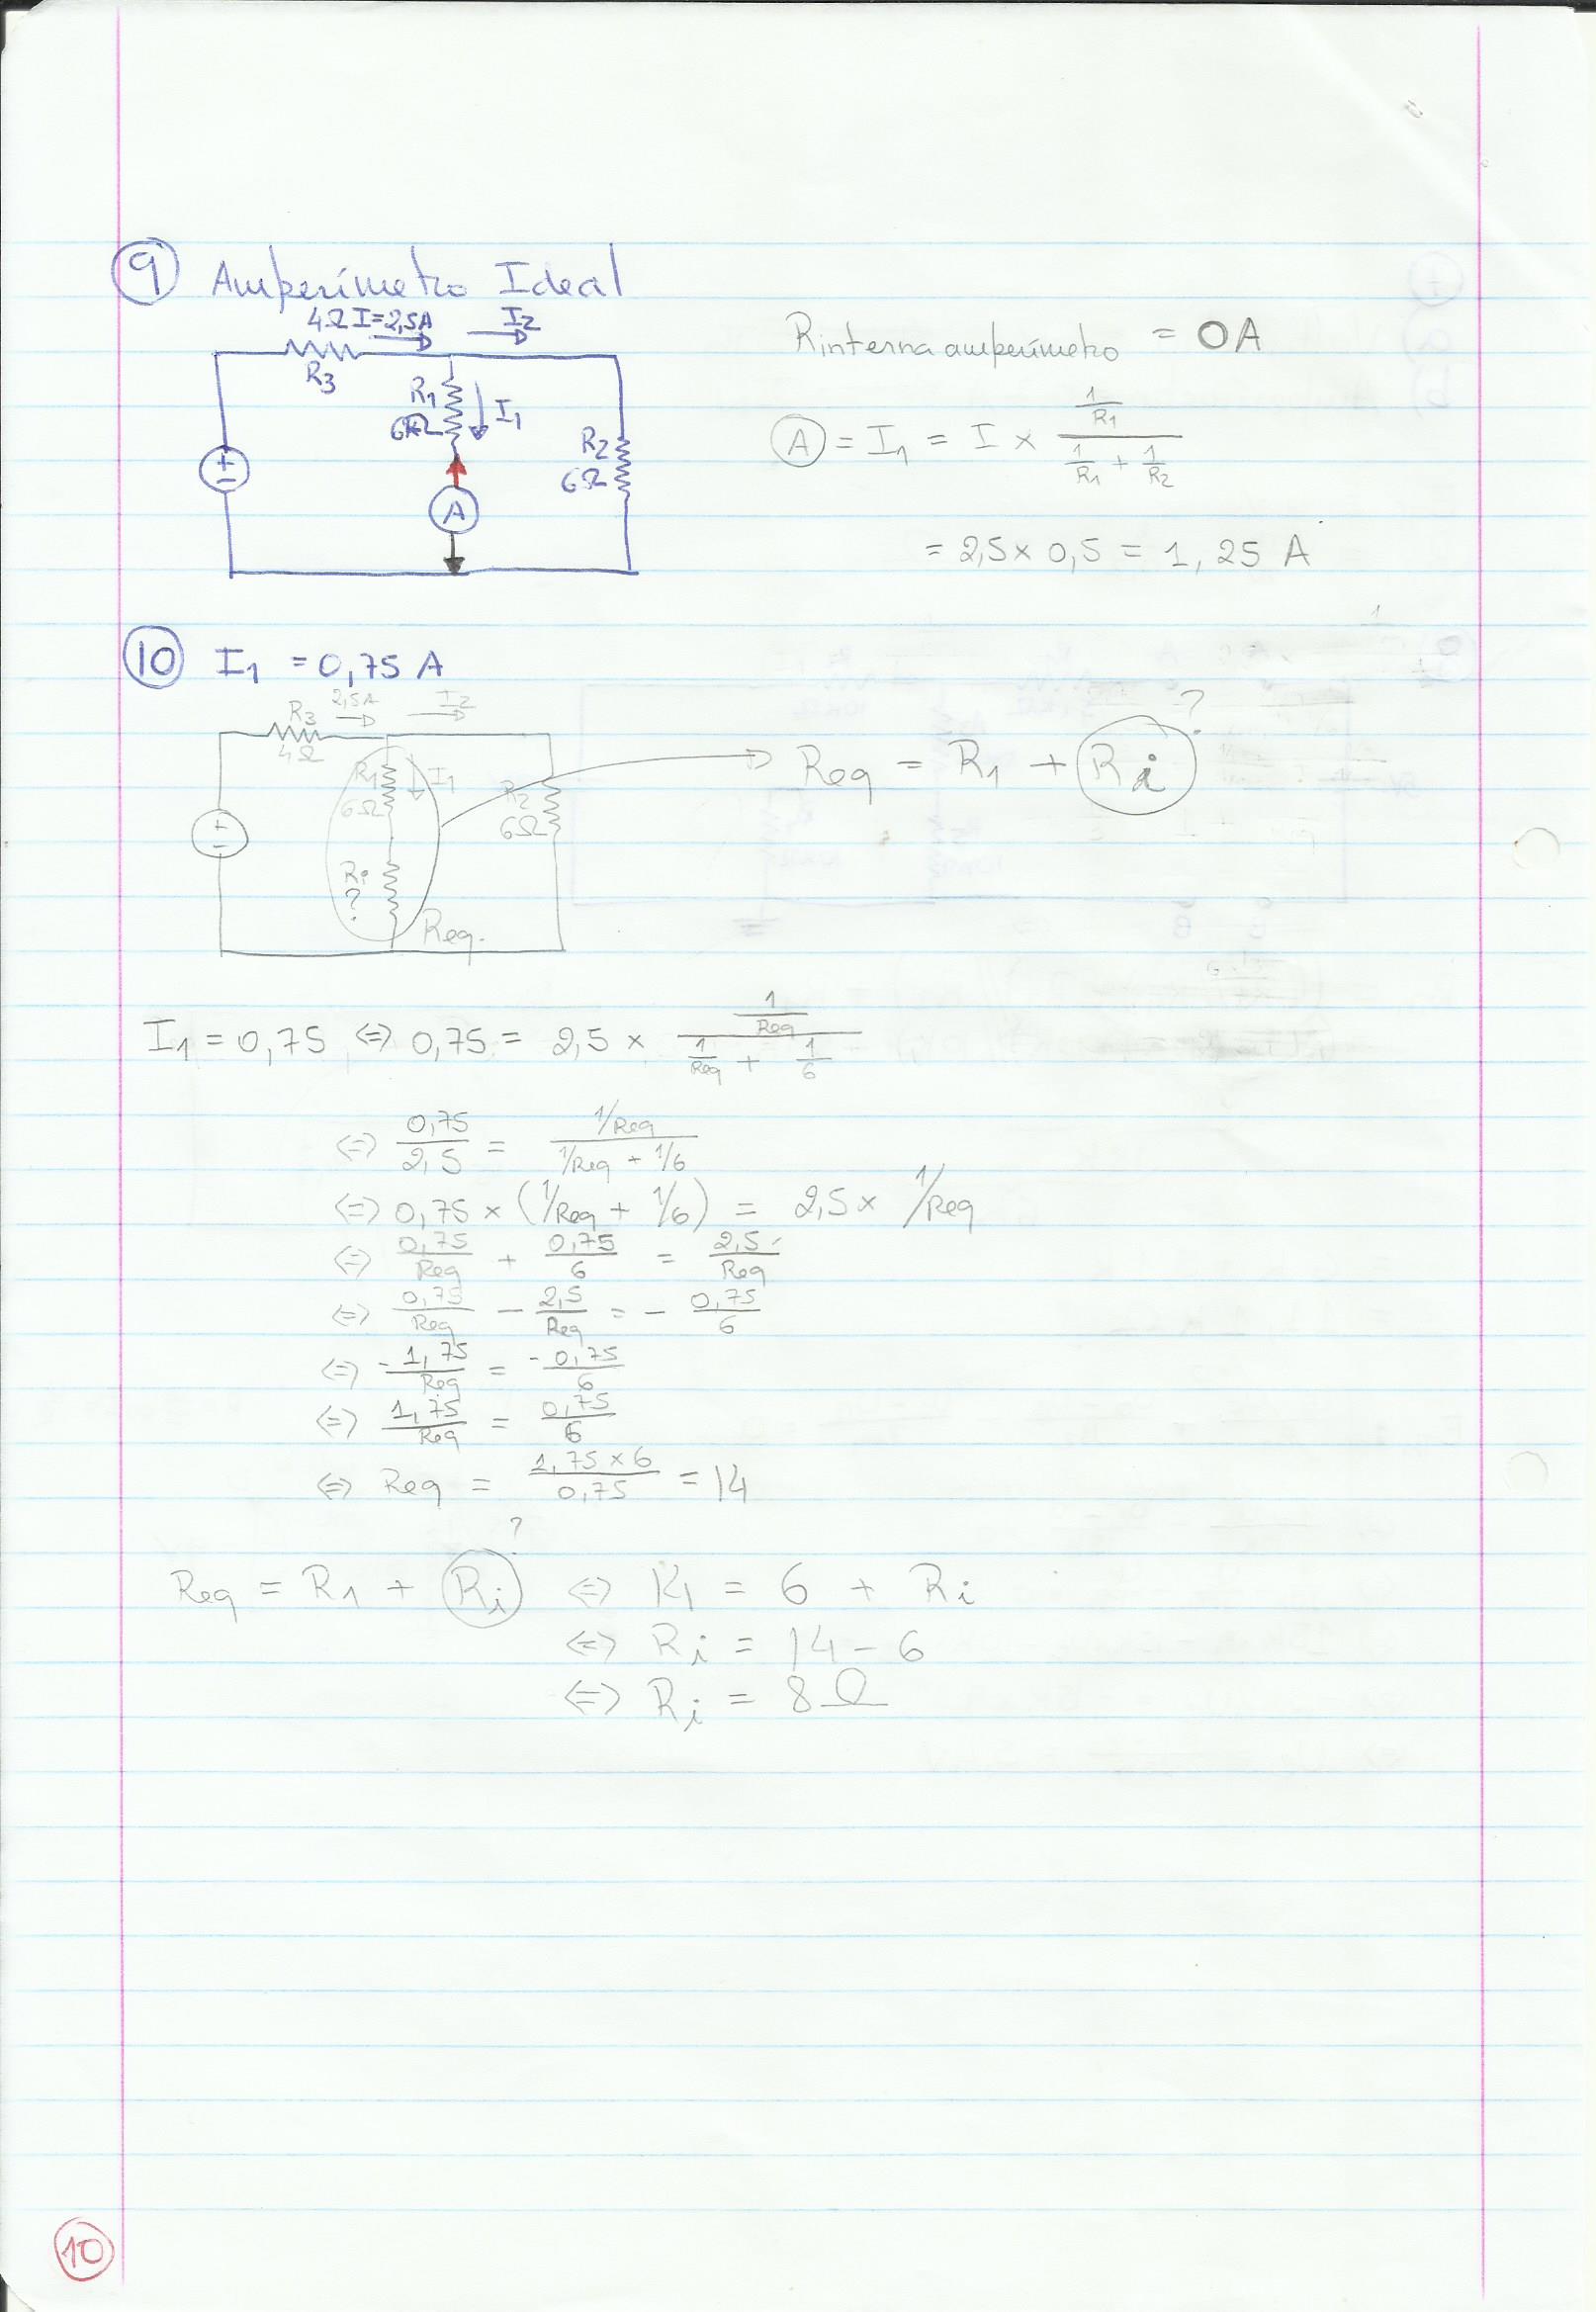 9 Amperímetro Ideal
4Ω I=2,5A I2
R3
R1
6Ω
I1
R2
6Ω
A
Rinterna amperímetro = 0A
A = I1 = I × (1/R1)/(1/R1 + 1/R2)
= 2,5 × 0,5 = 1,25 A
10 I1 = 0,75 A
R3 2,5A I2
4Ω
R1 I1
6Ω
R2
6Ω
Ri
?
Req.
Req = R1 + Ri ?
I1 = 0,75 ⇔ 0,75 = 2,5 × (1/Req)/(1/Req + 1/6)
⇔ 0,75/2,5 = (1/Req)/(1/Req + 1/6)
⇔ 0,75 × (1/Req + 1/6) = 2,5 × 1/Req
⇔ 0,75/Req + 0,75/6 = 2,5/Req
⇔ 0,75/Req - 2,5/Req = - 0,75/6
⇔ - 1,75/Req = - 0,75/6
⇔ 1,75/Req = 0,75/6
⇔ Req = (1,75 × 6)/0,75 = 14
Req = R1 + Ri ? ⇔ 14 = 6 + Ri
⇔ Ri = 14 - 6
⇔ Ri = 8Ω
10